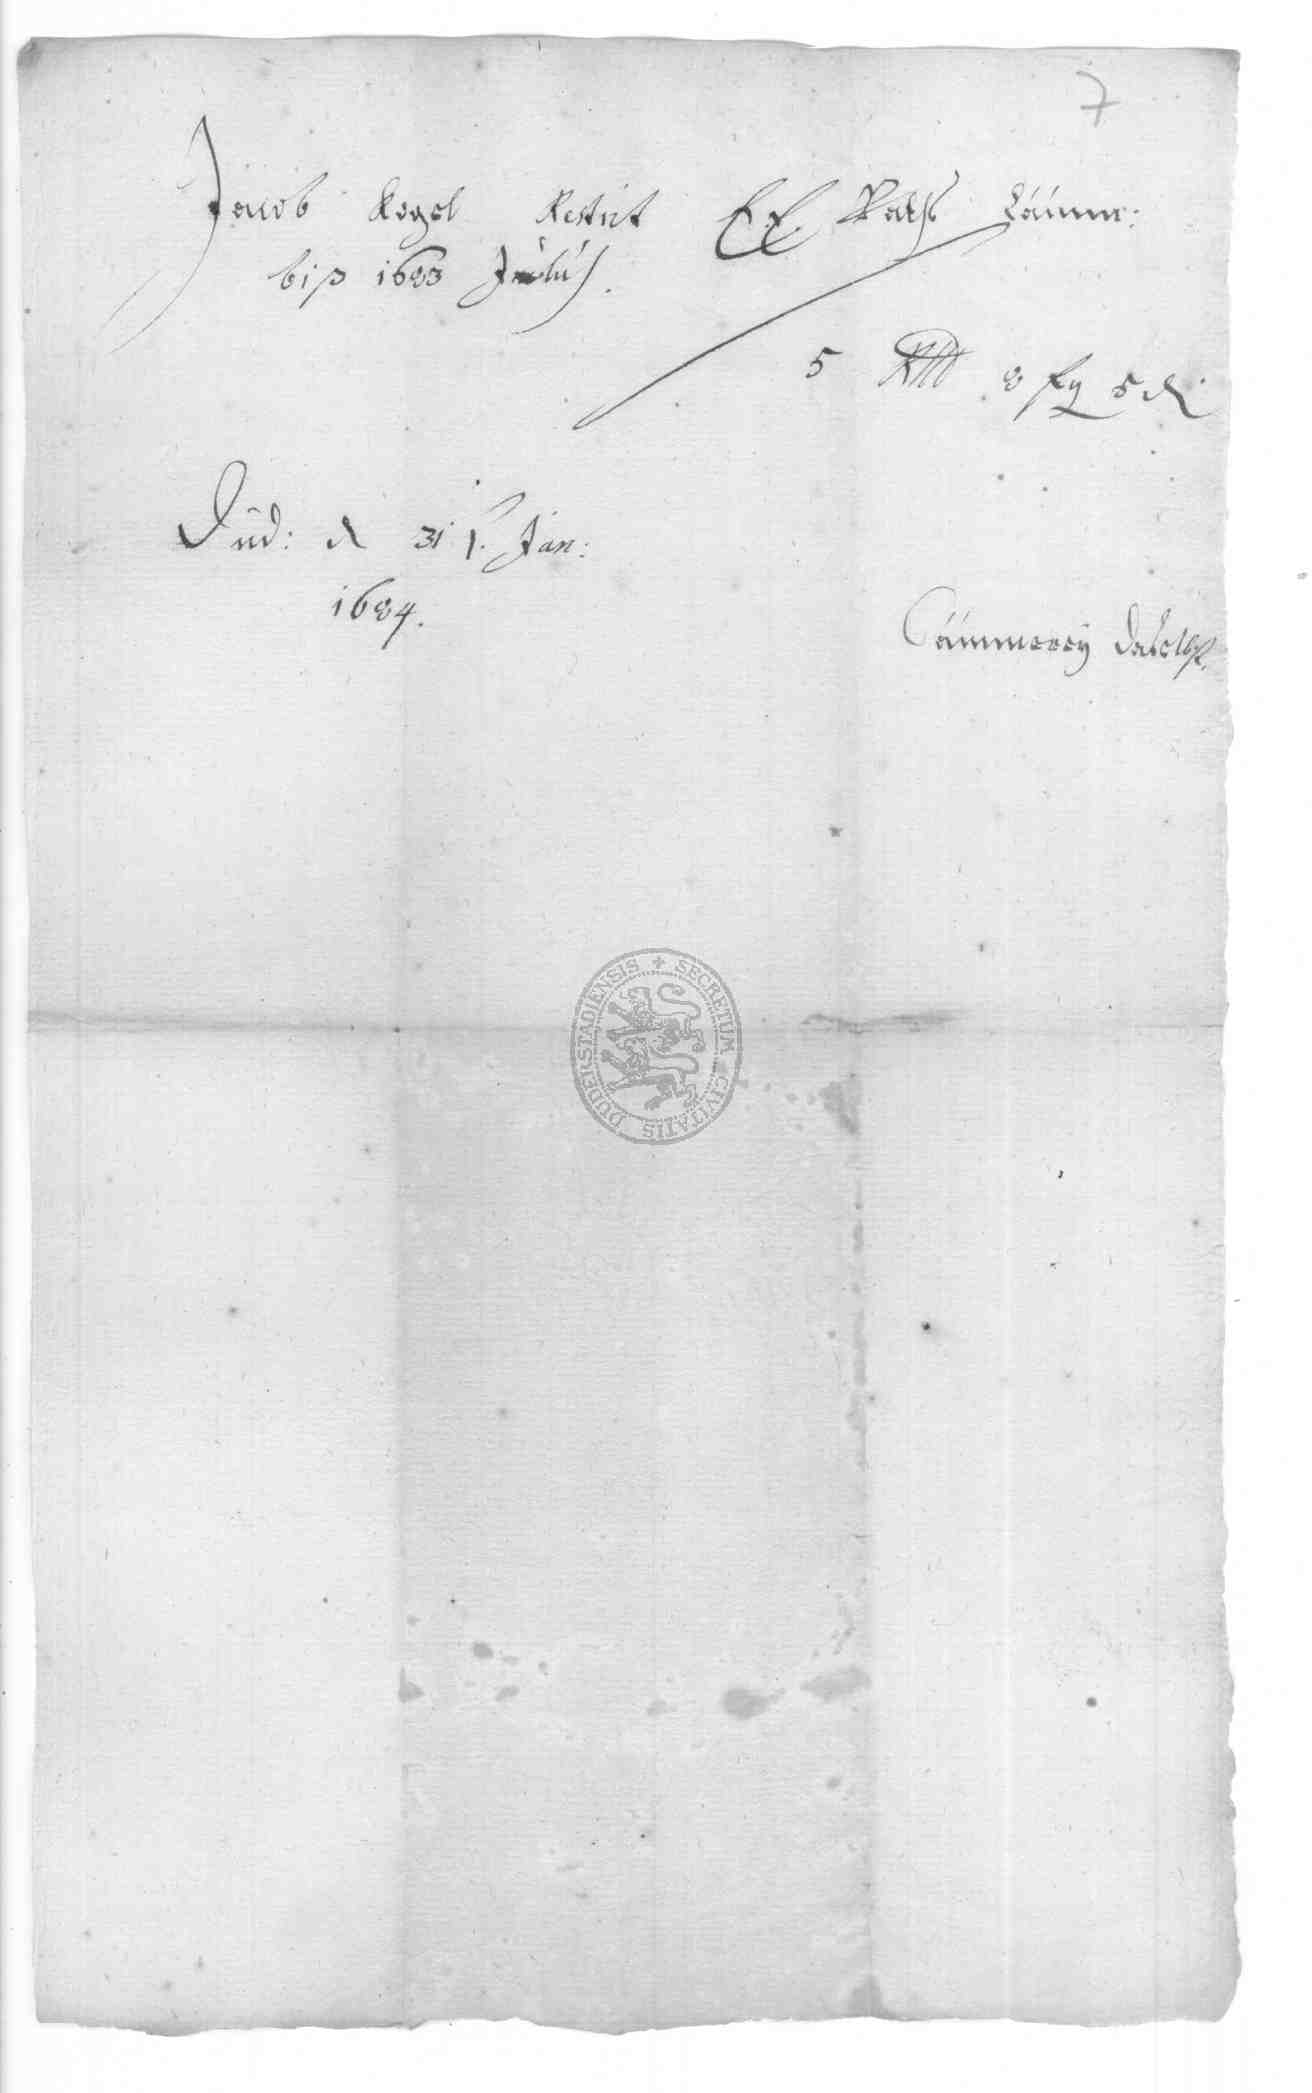 7
Jacob Kogel Restirt E. E. Raths Cämme:
biß 1683 Julÿ.
5 Rthl 8 ßg 5 d
Dud: d 31t. Jan:
1684.
Cämmereÿ daselbst.
SECRETUM CIVITATIS DUDERSTADIENSIS